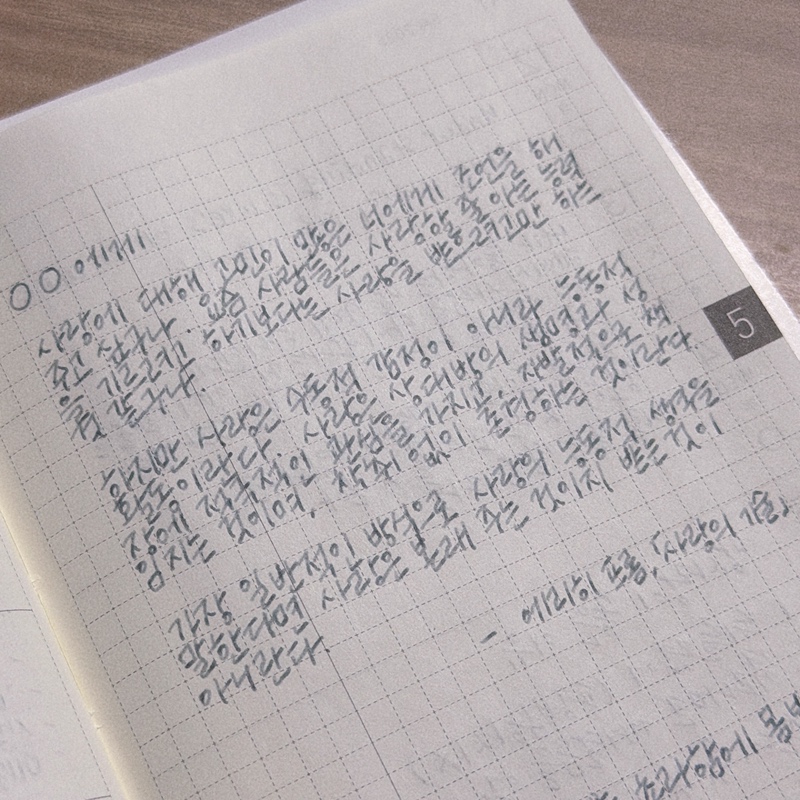 OO 에게
사랑에 대해 고민이 많은 너에게 조언을 해
주고 싶구나. 요즘 사람들은 사랑할 줄 아는 능력
을 기르려고 하기보다는 사랑을 받으려고만 하는
것 같구나.
하지만 사랑은 수동적 감정이 아니라 능동적
활동이란다. 사랑은 상대방의 생명과 성
장에 적극적인 관심을 가지고, 자발적으로 책
임지는 것이며, 착취 없이 존경하는 것이란다.
가장 일반적인 방식으로 사랑의 능동적 성격을
말한다면 사랑은 본래 주는 것이지 받는 것이
아니란다.
- 에리히 프롬, 「사랑의 기술」
5